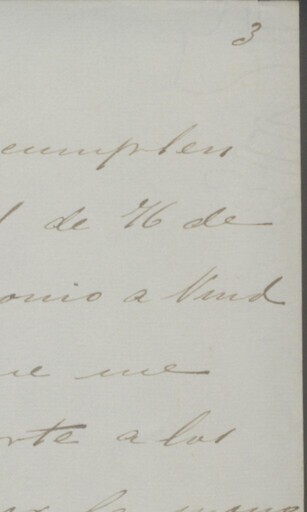 3
cumplen
l de 76 de
onio a Vend
ue me
rte a los